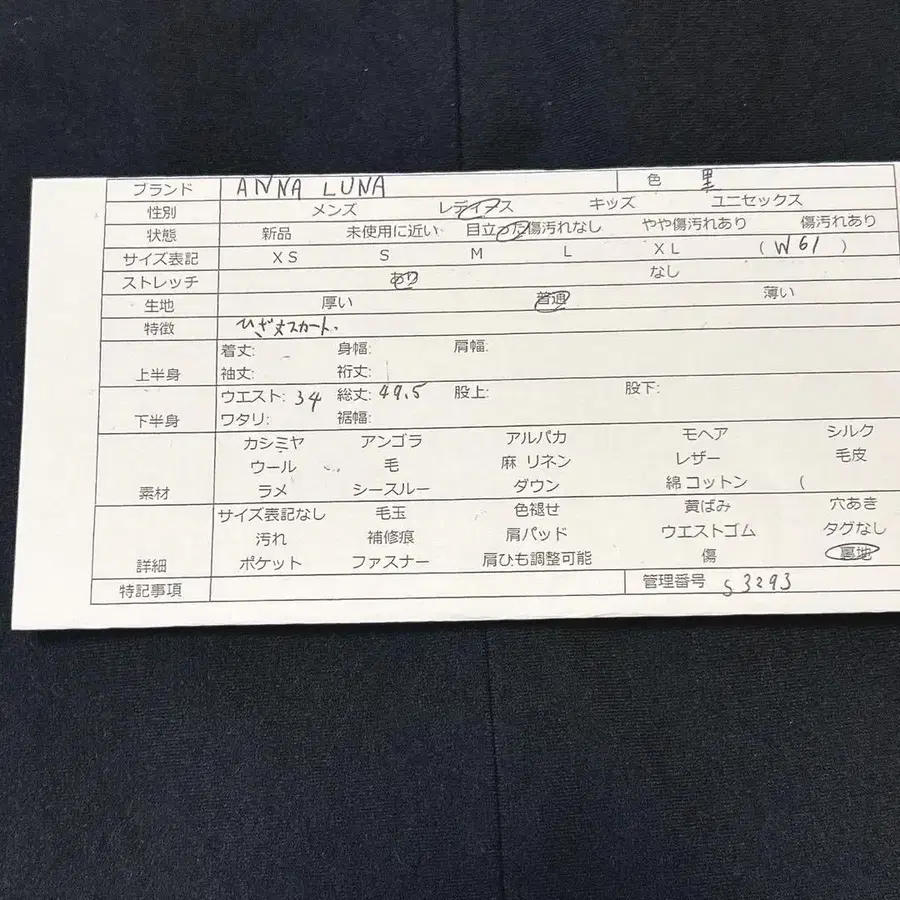 ブランド ANNA LUNA 色 黒
性別 メンズ レディース キッズ ユニセックス
状態 新品 未使用に近い 目立った傷汚れなし やや傷汚れあり 傷汚れあり
サイズ表記 XS S M L XL ( W61 )
ストレッチ あり なし
生地 厚い 普通 薄い
特徴 ひざ丈スカート.
上半身 着丈: 身幅: 肩幅:
袖丈: 裄丈:
下半身 ウエスト: 34 総丈: 49.5 股上: 股下:
ワタリ: 裾幅:
素材 カシミヤ アンゴラ アルパカ モヘア シルク
ウール 毛 麻 リネン レザー 毛皮
ラメ シースルー ダウン 綿 コットン (
詳細 サイズ表記なし 毛玉 色褪せ 黄ばみ 穴あき
汚れ 補修痕 肩パッド ウエストゴム タグなし
ポケット ファスナー 肩ひも調整可能 傷 裏地
特記事項 管理番号 S3293